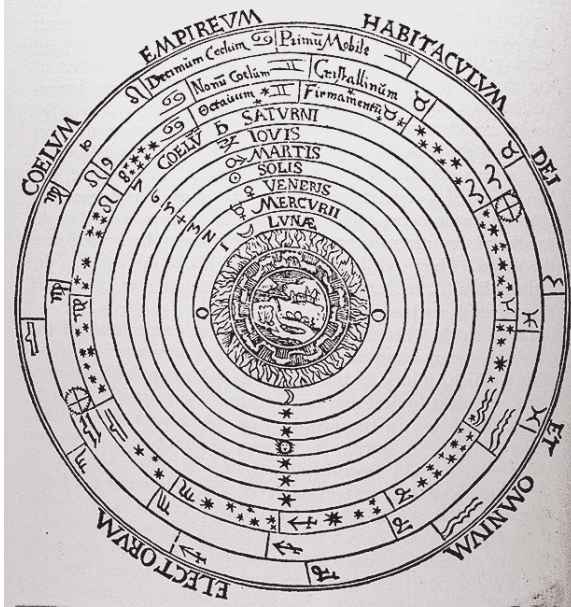 COELVM EMPIREVM HABITACVLVM DEI ET OMNIVM ELECTORVM
Decimum Coelum Primũ Mobile
Nonũ Coelum Cristallinum
Octauum Firmamentũ
COELV̄ SATVRNI
IOVIS
MARTIS
SOLIS
VENERIS
MERCVRII
LVNÆ
7
6
5
4
3
2
1